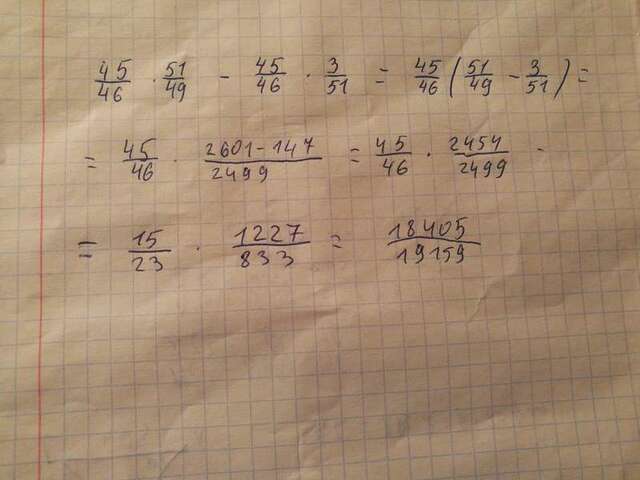 45/46 · 51/49 - 45/46 · 3/51 = 45/46 (51/49 - 3/51) =
= 45/46 · 2601-147/2499 = 45/46 · 2454/2499 -
= 15/23 · 1227/833 = 18405/19159